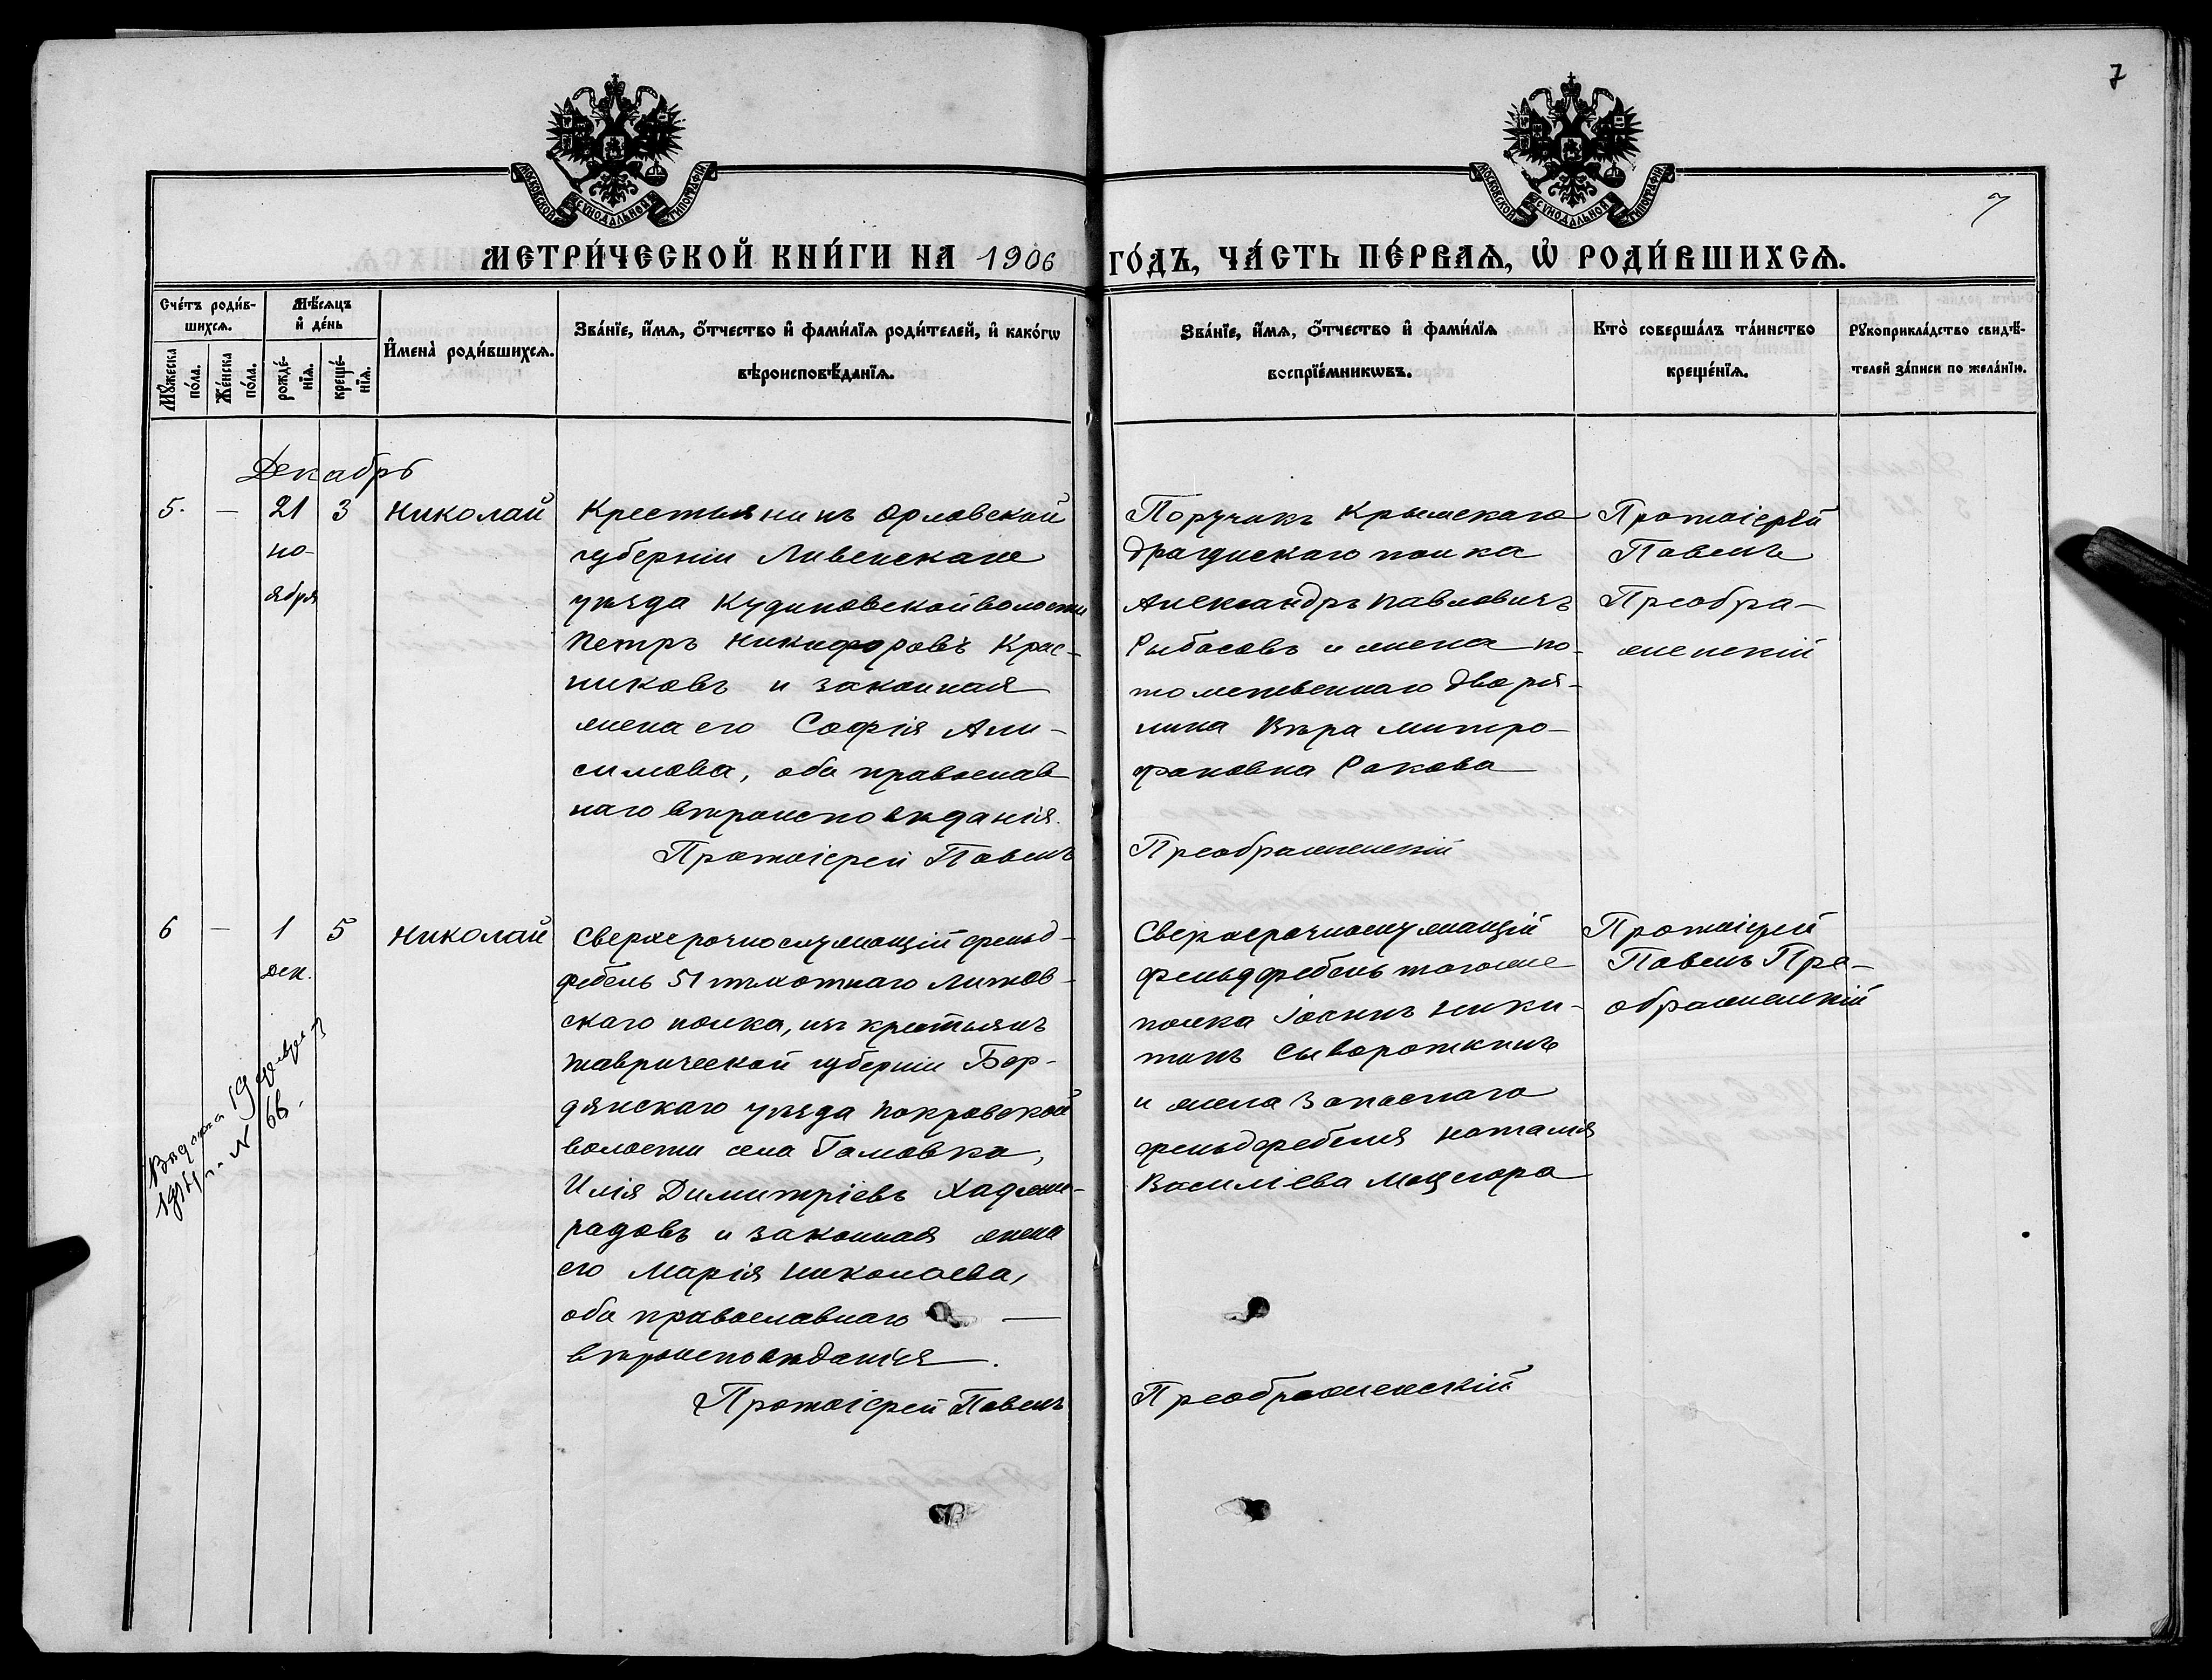 7
7
МОСКОВСКОЙ СѴНОДАЛЬНОЙ ТИПОГРАФІИ
МОСКОВСКОЙ СѴНОДАЛЬНОЙ ТИПОГРАФІИ
МЕТРИ́ЧЕСКОЙ КНИ́ГИ НА 1906 ГО́ДЪ, ЧА́СТЬ ПЕ́РВАѦ, Ѡ҆ РОДИ́ВШИХСѦ.
Сче́тъ роди́в-
шихсѧ.
Мꙋ́жеска по́ла.
Же́нска по́ла.
Мѣ́сѧцъ
и҆ де́нь
рожде́-
нїѧ.
креще́-
нїѧ.
И҆мена̀ роди́вшихсѧ.
Зва́нїе, и҆́мѧ, ѻ҆́тчество и҆ фами́лїѧ роди́телей, и҆ како́гѡ
вѣроисповѣ́данїѧ.
Зва́нїе, и҆́мѧ, ѻ҆́тчество и҆ фами́лїѧ
воспрїе́мникѡвъ.
Кто̀ соверша́лъ та́инство
креще́нїѧ.
Рꙋкоприкла́дство свидѣ́-
телей за́писи по жела́нїю.
Декабрь
5. — 21 3 Николай
но-
ября
Крестьянинъ Орловской
губерніи Ливенскаго
уѣзда Кудиновской волости
Петръ Никифоровъ Крас-
никовъ и законная
жена его Софія Ани-
симова, оба православ
наго вѣроисповѣданія.
Протоіерей Павелъ
Поручикъ Крымскаго
драгунскаго полка
Александръ Павловичъ
Рыбасовъ и жена по-
томственнаго дворя-
нина Вѣра Митро-
фановна Ракова
Преображенскій
Протоіерей
Павелъ
Преобра-
женскій
6 — 1 5 Николай
дек.
Сверхсрочнослужащій фельд-
фебель 51 пѣхотнаго Литов-
скаго полка, изъ крестьянъ
Таврической губерніи Бер-
дянскаго уѣзда Покровской
волости села Гамовка,
Илія Димитріевъ
и законная жена
его Марія Николаева,
оба православнаго —
вѣроисповѣданія.
Протоіерей Павелъ
Сверхсрочнослужащій
фельдфебель тогоже
полка Іосифъ Ники-
тинъ Сывороткинъ
и жена запаснаго
фельдфебеля Наталія
Василіева
Преображенскій
Протоіерей
Павелъ Пре-
ображенскій
19
1914 г. № 66.